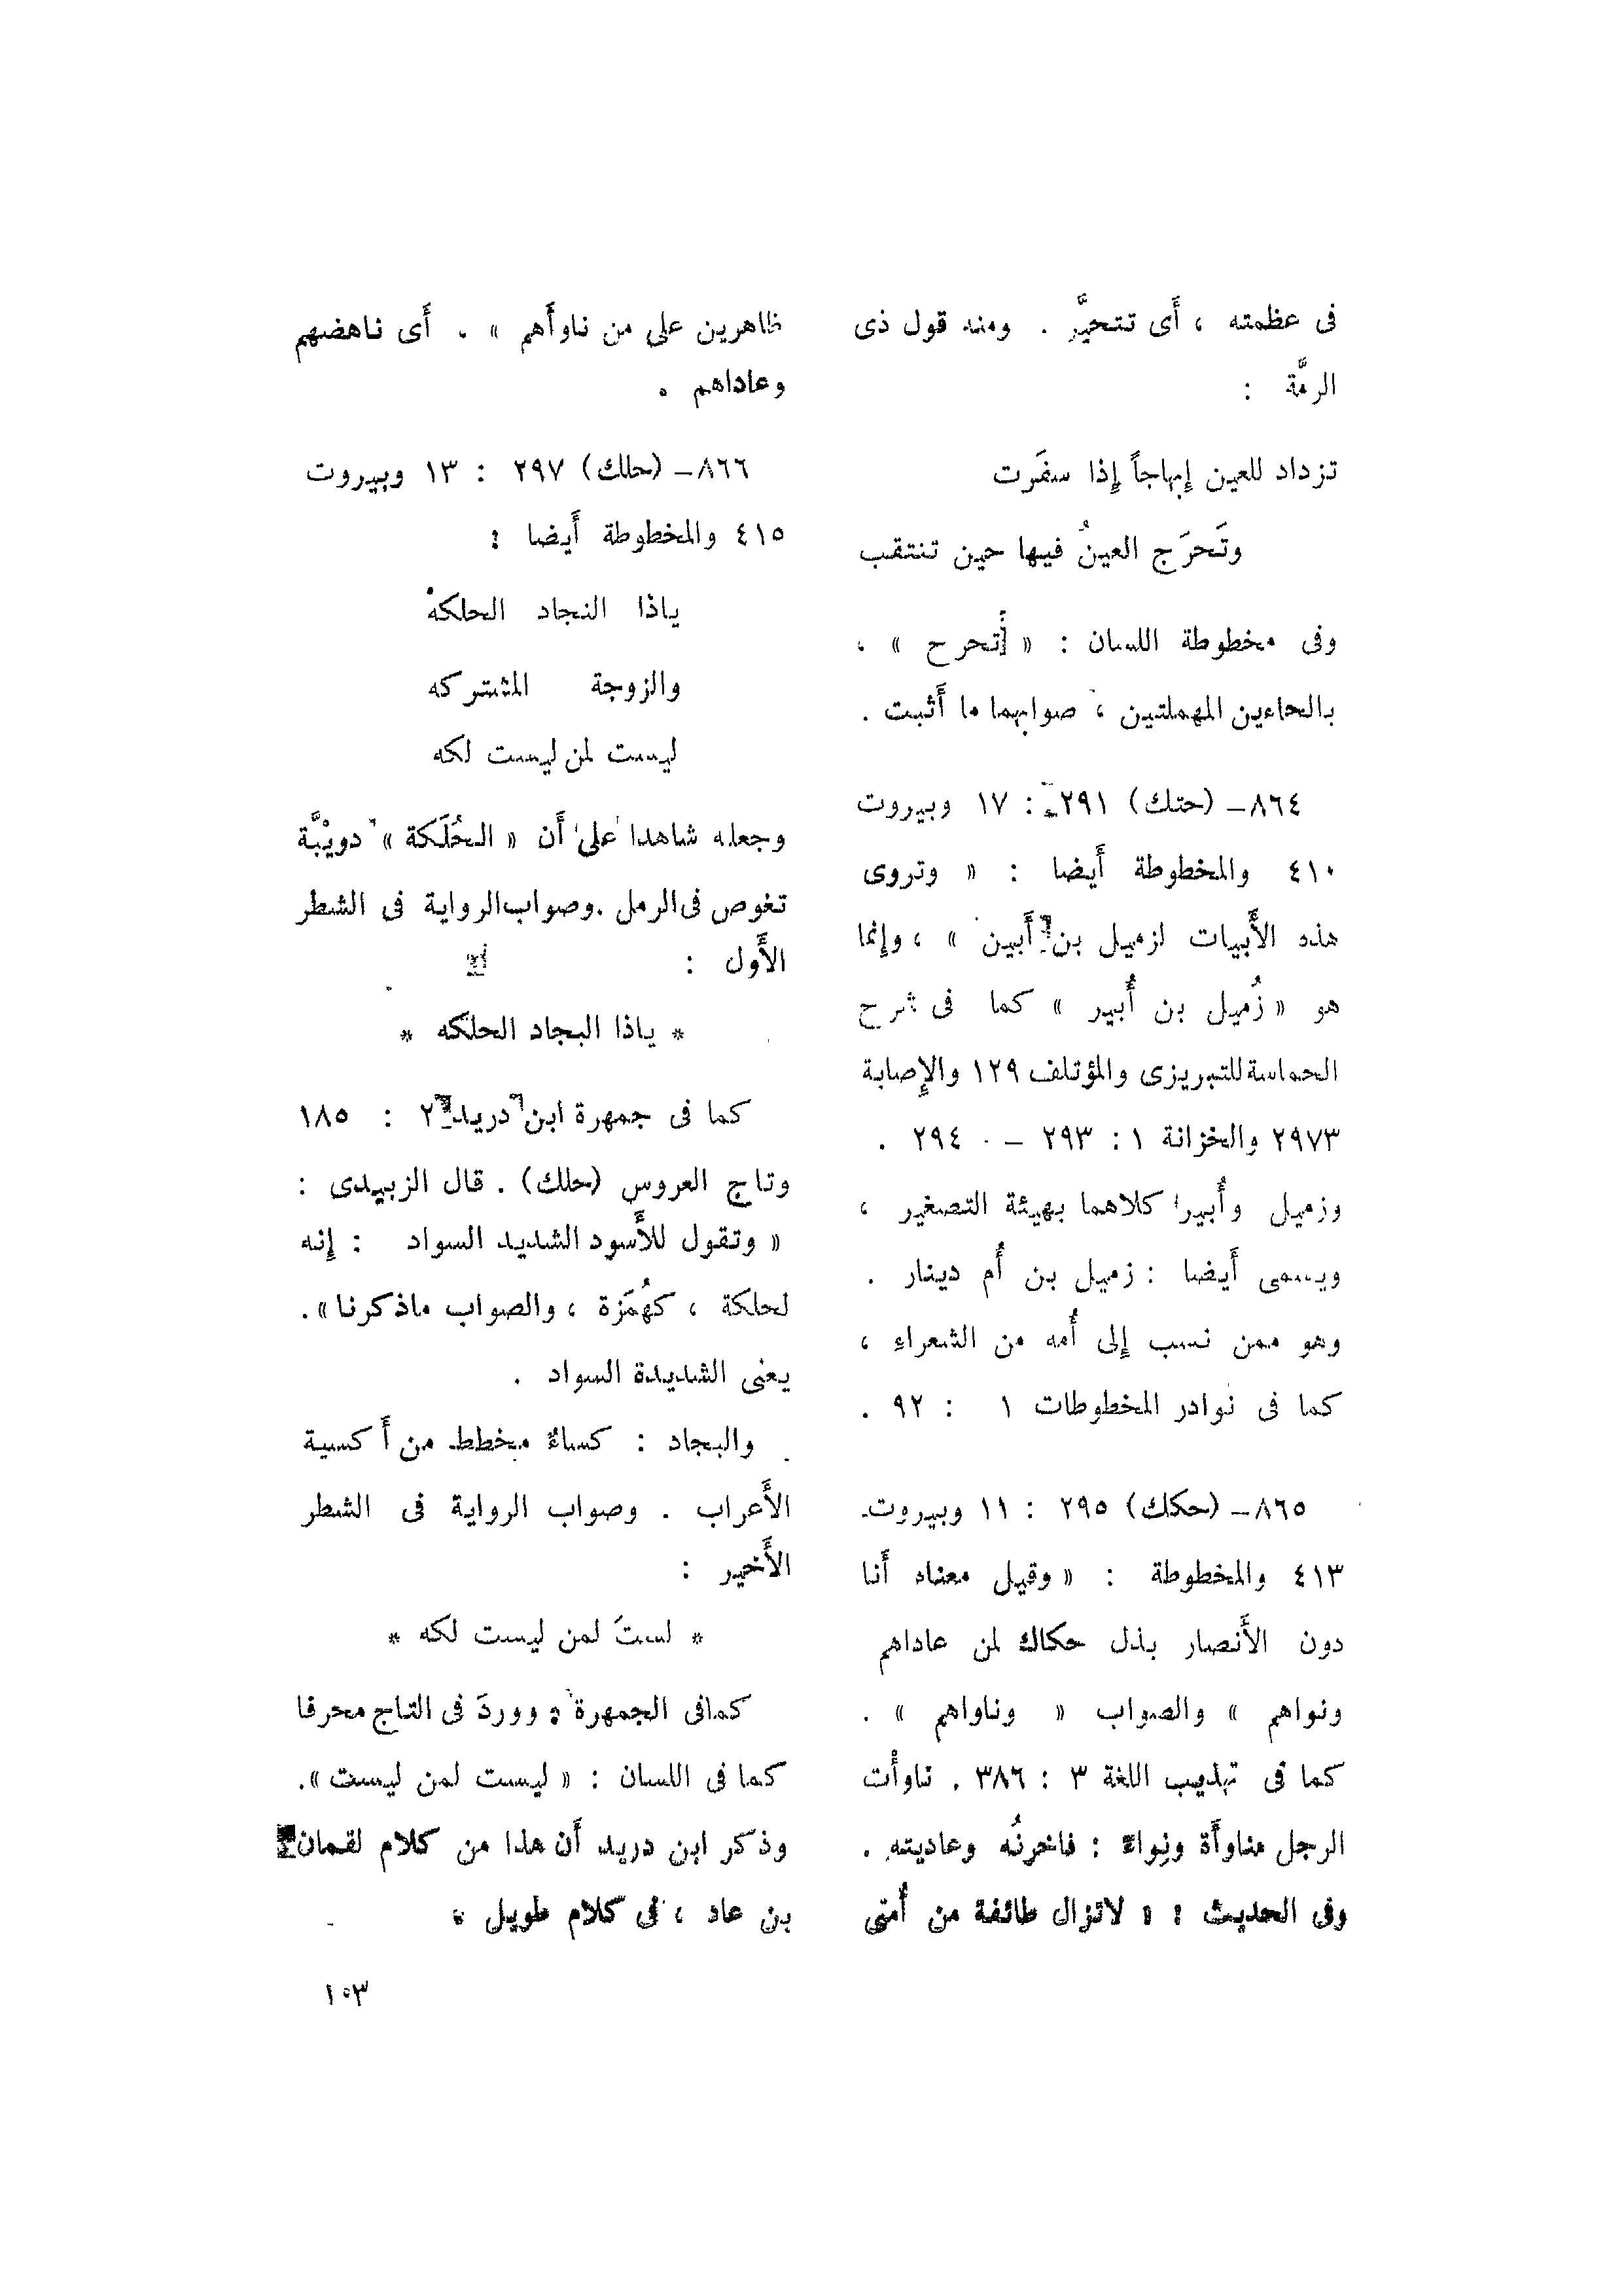 فى عظمته ، أَى تتحيَّر . ومنه قول ذى
الرمَّة :
تزداد للعين إِبهاجاً إِذا سفَرت
وتَحرَج العينُ فيها حين تنتقب
وفى مخطوطة اللسان : « تحرح » ،
بالحاءين المهملتين ، صوابهما ما أَثبت .
٨٦٤ – (حتك) ٢٩١ : ١٧ وبيروت
٤١٠ والمخطوطة أَيضا : « وتروى
هذه الأَبيات لزميل بن أَبين » ، وإِنما
هو « زُميل بن أُبير » كما فى شرح
الحماسة للتبريزى والمؤتلف ١٢٩ والإِصابة
٢٩٧٣ والخزانة ١ : ٢٩٣ – ٢٩٤ .
وزميل وأُبير كلاهما بهيئة التصغير ،
ويسمى أَيضا : زميل بن أُم دينار .
وهو ممن نسب إِلى أُمه من الشعراءِ ،
كما فى نوادر المخطوطات ١ : ٩٢ .
٨٦٥ – (حكك) ٢٩٥ : ١١ وبيروت
٤١٣ والمخطوطة : « وقيل معناه أَنا
دون الأَنصار بذل حكاك لمن عاداهم
ونواهم » والصواب « وناواهم » .
كما فى تهذيب اللغة ٣ : ٣٨٦ . ناوأْت
الرجل مناوأَة ونِواءً : فاخرتُه وعاديته .
وفى الحديث : « لاتزال طائفة من أُمتى
ظاهرين على من ناوأَهم » . أَى ناهضهم
وعاداهم .
٨٦٦ – (حلك) ٢٩٧ : ١٣ وبيروت
٤١٥ والمخطوطة أَيضا :
ياذا النجاد الحلكهْ
والزوجة المشتركه
ليست لمن ليست لكه
وجعله شاهدا على أَن « الحُلَكة » دويْبَّة
تغوص فى الرمل . وصواب الرواية فى الشطر
الأَول :
* ياذا البجاد الحلكه *
كما فى جمهرة ابن دريد ٢ : ١٨٥
وتاج العروس (حلك) . قال الزبيدى :
« وتقول للأَسود الشديد السواد : إِنه
لحلكة ، كهُمَزة ، والصواب ماذكرنا » .
يعنى الشديدة السواد .
والبجاد : كساءٌ مخطط من أَكسية
الأَعراب . وصواب الرواية فى الشطر
الأَخير :
* لستَ لمن ليست لكه *
كمافى الجمهرة : ووردَ فى التاج محرفا
كما فى اللسان : « ليست لمن ليست » .
وذكر ابن دريد أَن هذا من كلام لقمان
بن عاد ، فى كلام طويل .
١٠٣